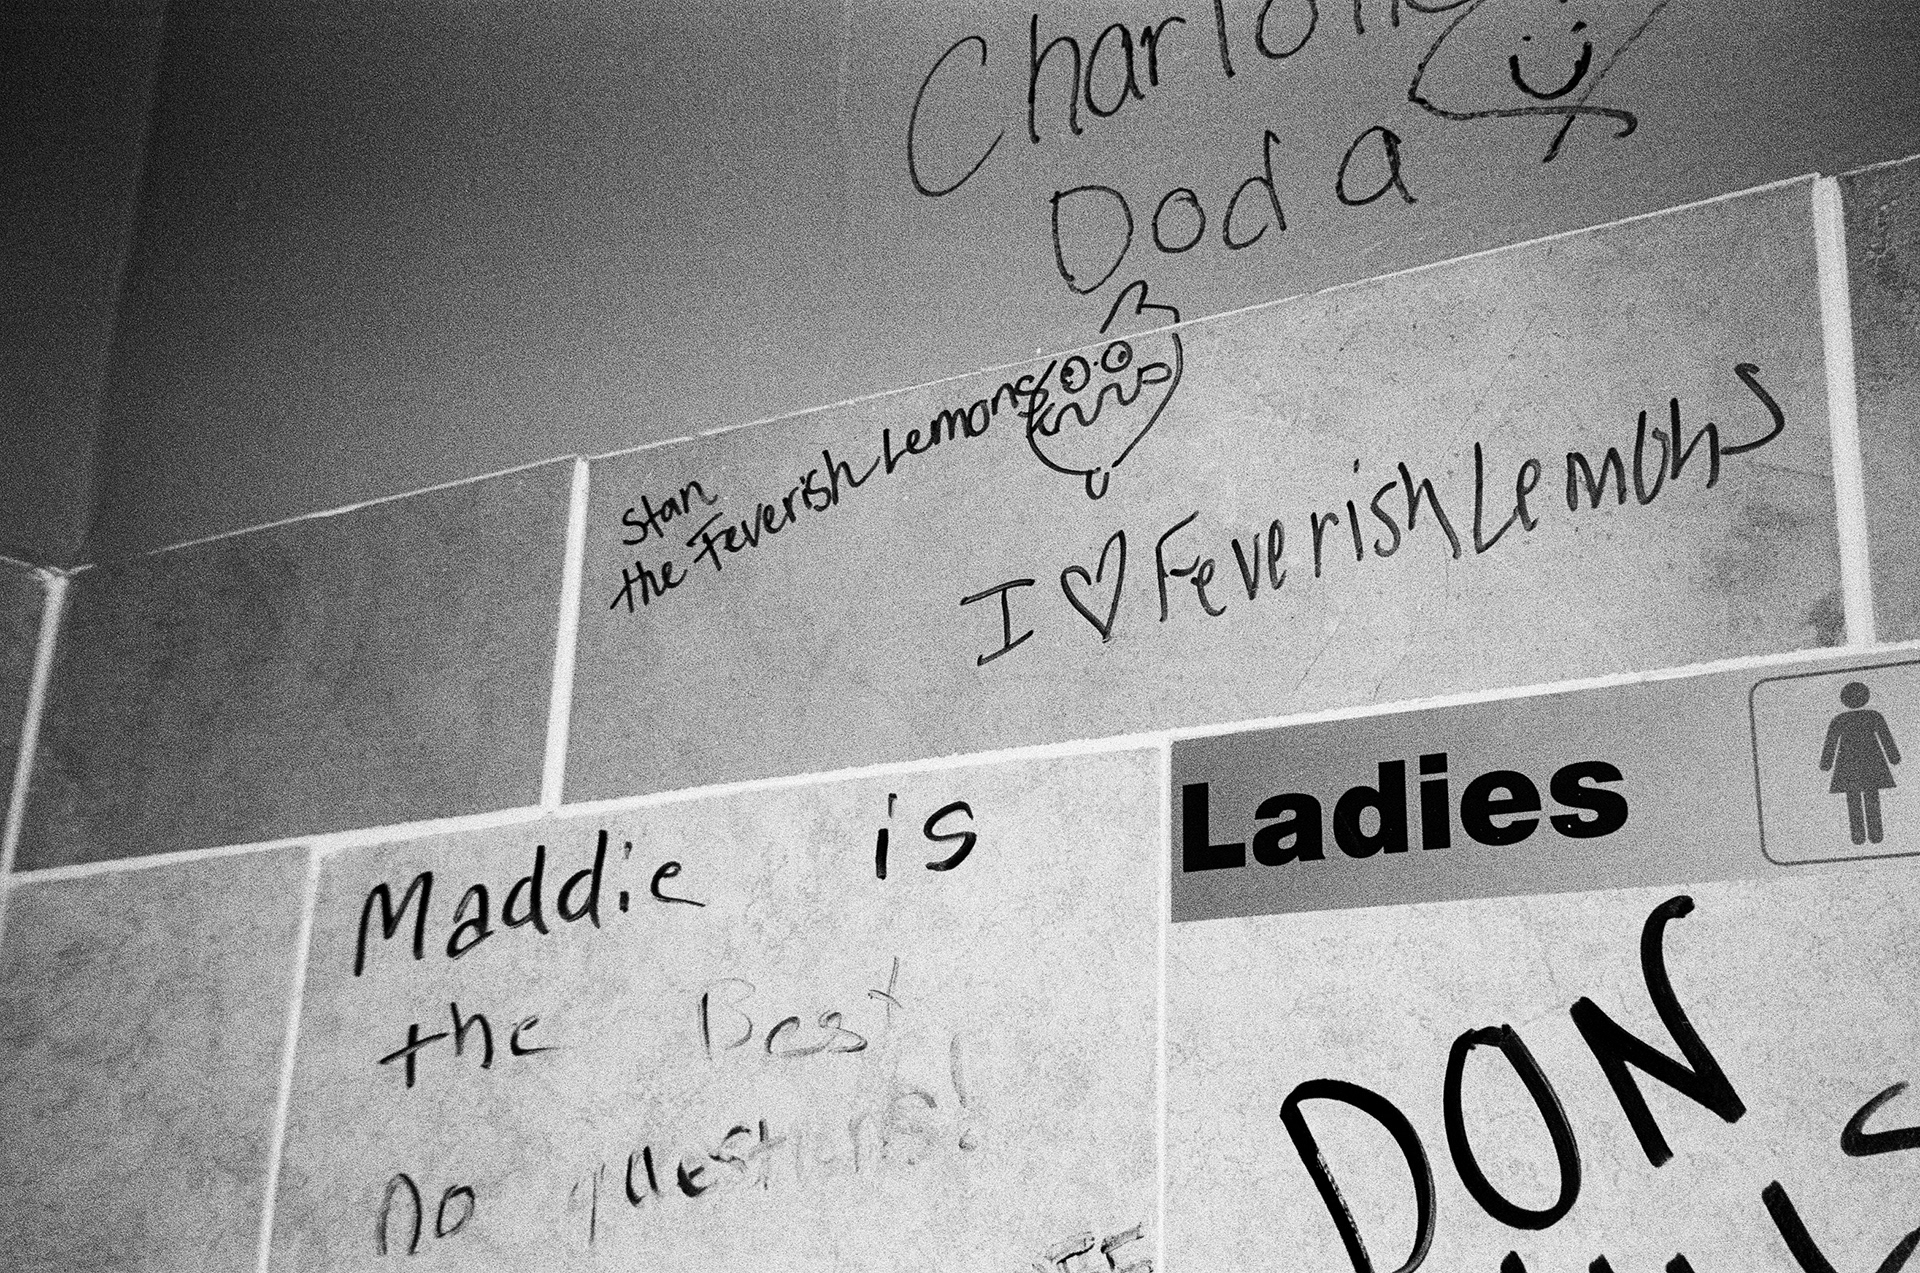 Doda
Stan
the Feverish Lemons
I ♡ Feverish Lemons
Ladies
Maddie is
the Best
no questions!
DON